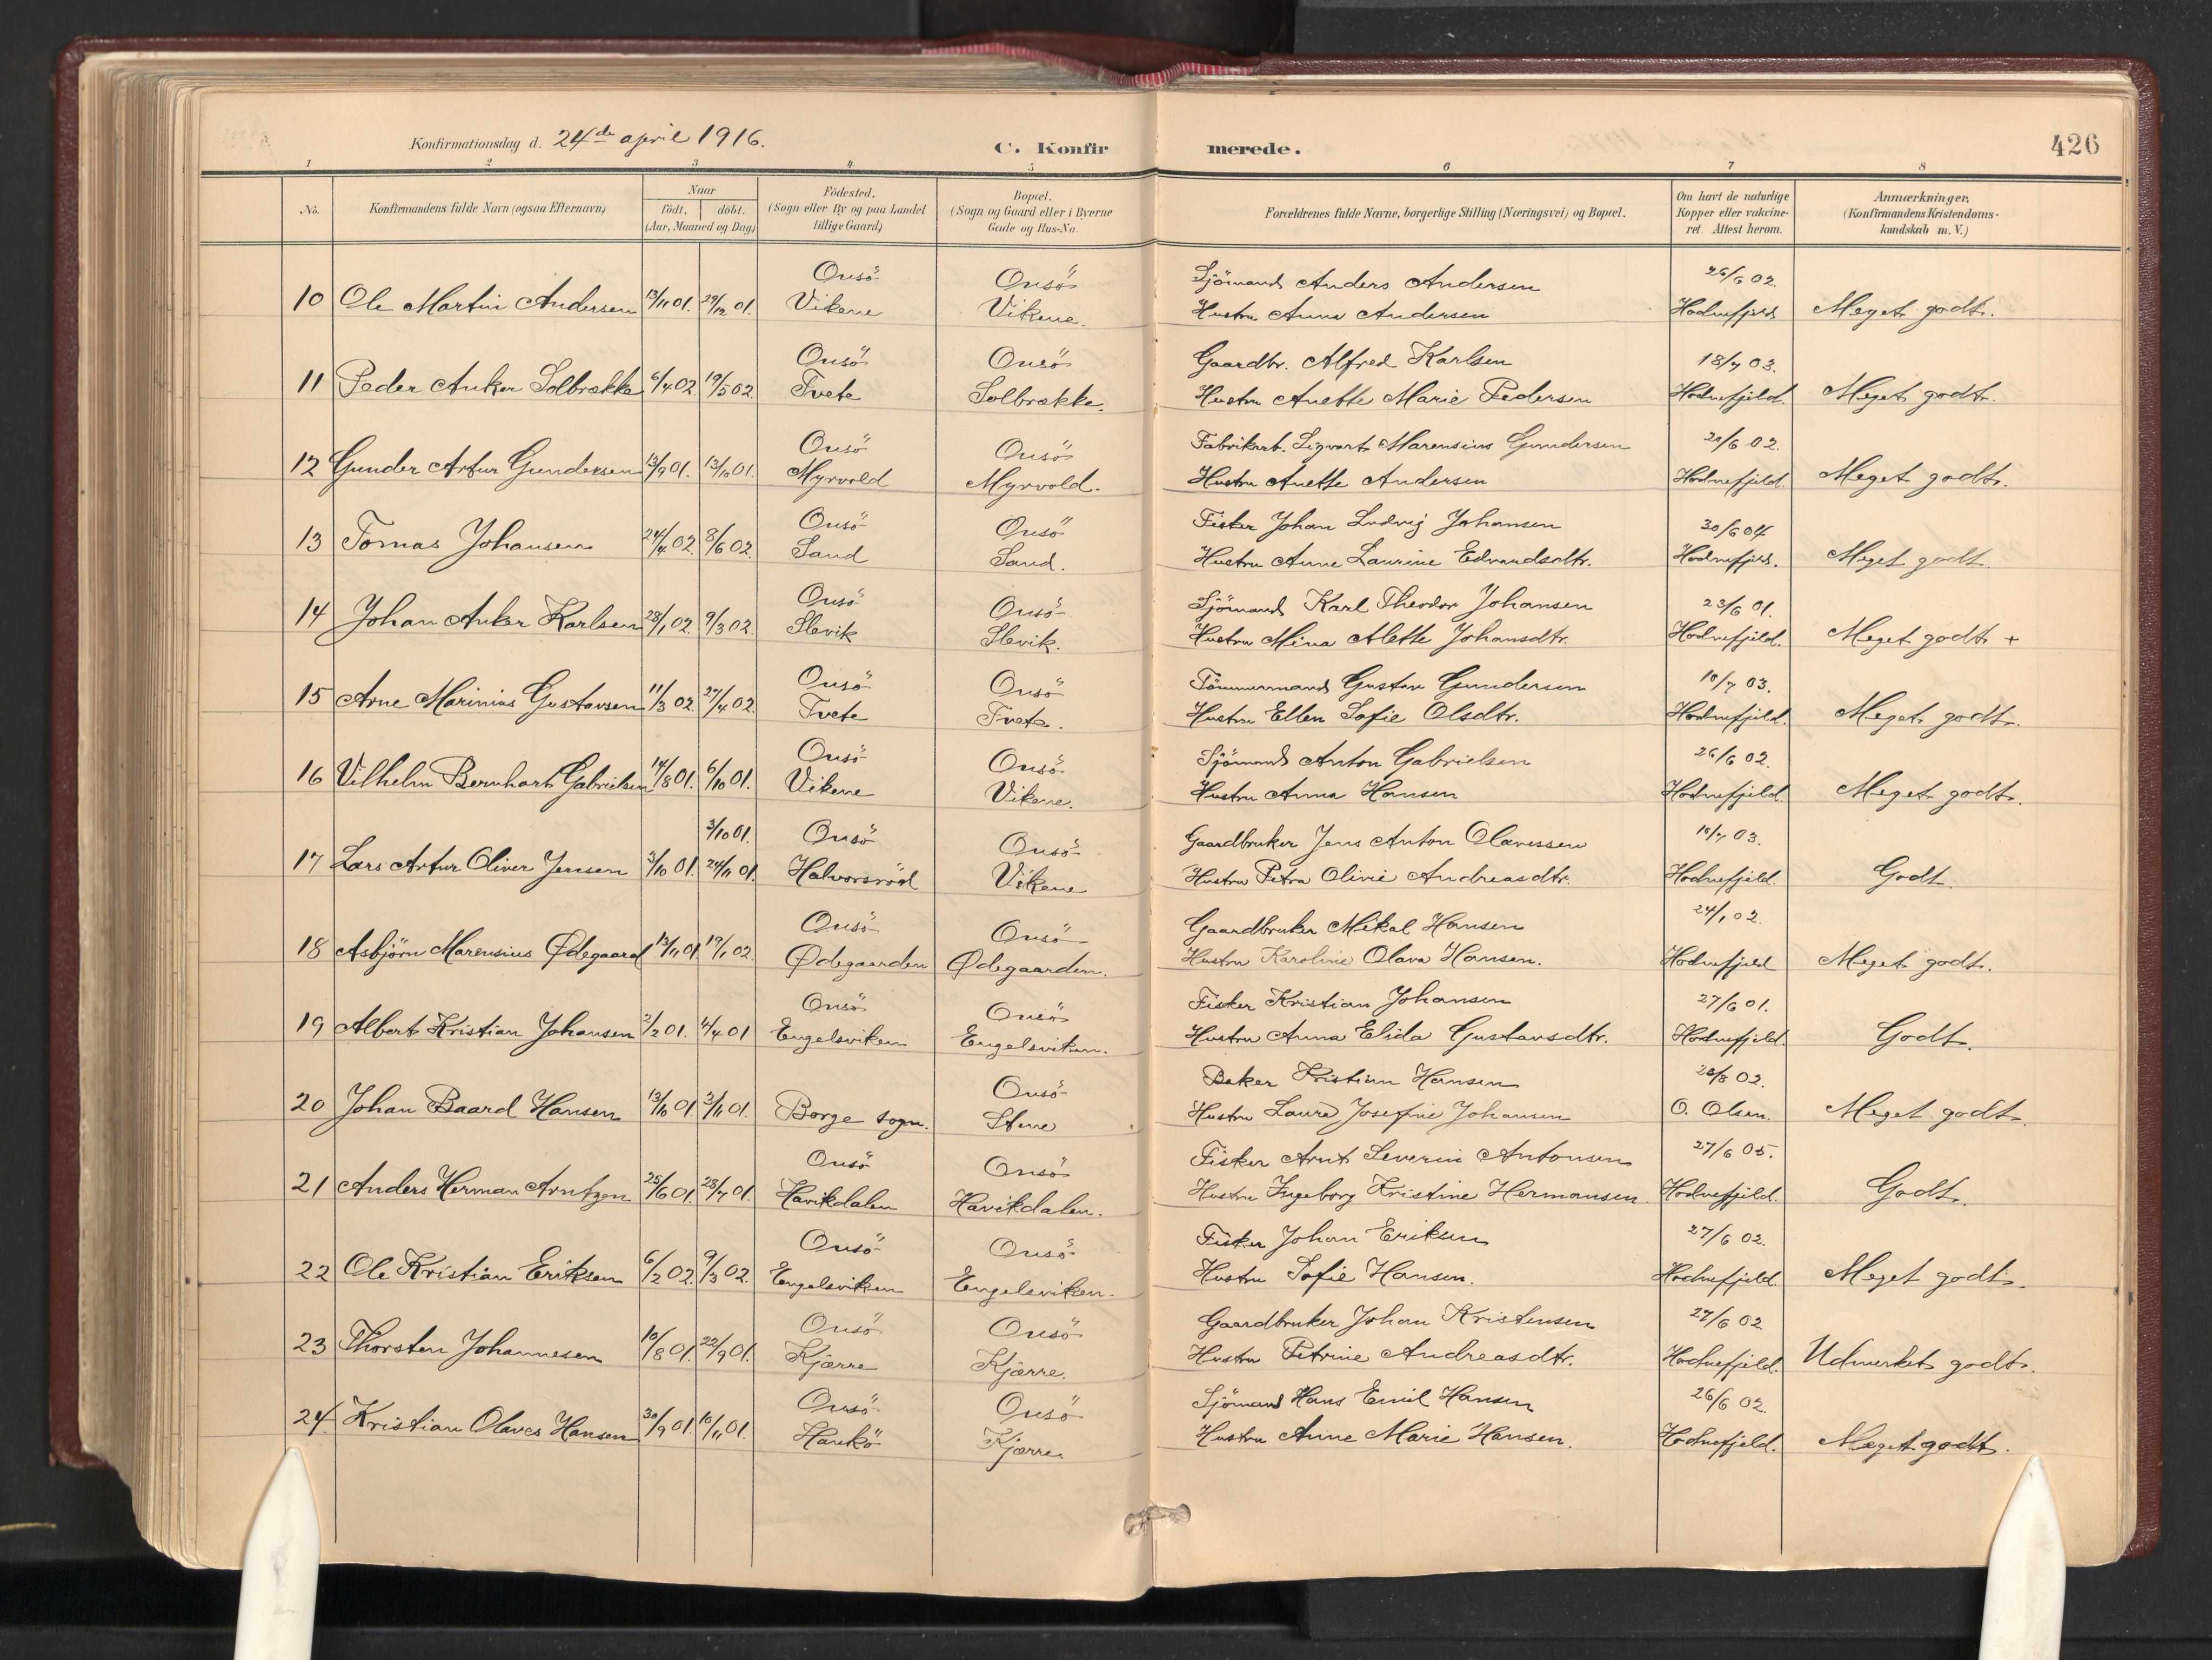 Konfirmationsdag d. 24de april 1916.
C. Konfirmerede.
426
1 2 3 4 5 6 7 8
No.
Konfirmandens fulde Navn (ogsaa Efternavn)
Naar
födt. döbt.
(Aar, Maaned og Dag)
Födested.
(Sogn eller By og paa Landet
tillige Gaard)
Bopæl.
(Sogn og Gaard eller i Byerne
Gade og Hus-No.
Forældrenes fulde Navne, borgerlige Stilling (Næringsvei) og Bopæl.
Om havt de naturlige
Kopper eller vakcine-
ret. Attest herom.
Anmærkninger,
(Konfirmandens Kristendoms-
kundskab m. V.)
Onsö Onsö Sjömand Anders Andersen 26/6 02.
10 Ole Martin Andersen 13/11 01. 29/12 01. Vikene Vikene. Hustru Anna Andersen Hodnefjeld Meget godt.
Onsö Onsö Gaardbr. Alfred Karlsen 18/7 03.
11 Peder Anker Solbrække 6/4 02 19/5 02. Tvete Solbrække. Hustru Anette Marie Pedersen Hodnefjeld. Meget godt.
Onsö Onsö Fabrikarb. Sigvart Marensius Gundersen 20/6 02.
12 Gunder Artur Gundersen 13/9 01. 13/10 01. Myrvold Myrvold. Hustru Anette Andersen Hodnefjeld. Meget godt.
Onsö Onsö Fisker Johan Ludvig Johansen 30/6 04
13 Tomas Johansen 24/4 02. 8/6 02. Sand Sand. Hustru Anne Laurine Edvardsdtr. Hodnefjeld. Meget godt.
Onsö Onsö Sjömand Karl Theodor Johansen 23/6 01.
14 Johan Anker Karlsen 28/1 02. 9/3 02. Slevik Slevik. Hustru Mina Alette Johansdtr. Hodnefjeld. Meget godt +
Onsö Onsö Tömmermand Gustav Gundersen 10/7 03.
15 Arne Marinius Gustavsen 11/3 02. 27/4 02. Tvete Tvete. Hustru Ellen Sofie Olsdtr. Hodnefjeld. Meget godt.
Onsö Onsö Sjömand Anton Gabrielsen 26/6 02.
16 Vilhelm Bernhart Gabrielsen 14/8 01. 6/10 01. Vikene Vikene. Hustru Anna Hansen Hodnefjeld. Meget godt.
3/10 01. Onsö Onsö Gaardbruker Jens Anton Olavessen 10/7 03.
17 Lars Artur Oliver Jensen 3/10 01. 24/11 01. Halvorsröd Vikene Hustru Petra Olivie Andreasdtr. Hodnefjeld. Godt.
Onsö Onsö Gaardbruker Mikal Hansen 24/1 02.
18 Asbjörn Marensius Ødegaard 13/11 01 19/1 02. Ødegaarden Ødegaarden. Hustru Karoline Olava Hansen. Hodnefjeld Meget godt.
Onsö Onsö Fisker Kristian Johansen 27/6 01.
19 Albert Kristian Johansen 2/2 01. 4/4 01 Engelsviken Engelsviken. Hustru Anna Elida Gustavsdtr. Hodnefjeld. Godt.
Onsö Baker Kristian Hansen 28/8 02.
20 Johan Baard Hansen 13/10 01 3/11 01. Borge sogn. Stene Hustru Laura Josefine Johansen O. Olsen. Meget godt.
Onsö Onsö Fisker Arnt Severin Antonsen 27/6 05.
21 Anders Herman Arntzen 25/6 01. 28/7 01. Havikdalen Havikdalen. Hustru Ingeborg Kristine Hermansen. Hodnefjeld. Godt.
Onsö Onsö Fisker Johan Eriksen 27/6 02.
22 Ole Kristian Eriksen 6/2 02. 9/3 02. Engelsviken Engelsviken. Hustru Sofie Hansen. Hodnefjeld. Meget godt.
Onsö Onsö Gaardbruker Johan Kristensen 27/6 02.
23 Thorsten Johannesen 10/8 01. 22/9 01. Kjærre Kjærre. Hustru Petrine Andreasdtr. Hodnefjeld. Udmerket godt.
Onsö Onsö Sjömand Hans Emil Hansen 26/6 02.
24. Kristian Olaves Hansen 30/9 01. 10/11 01. Hankö Kjærre Hustru Anne Marie Hansen. Hodnefjeld. Meget godt.